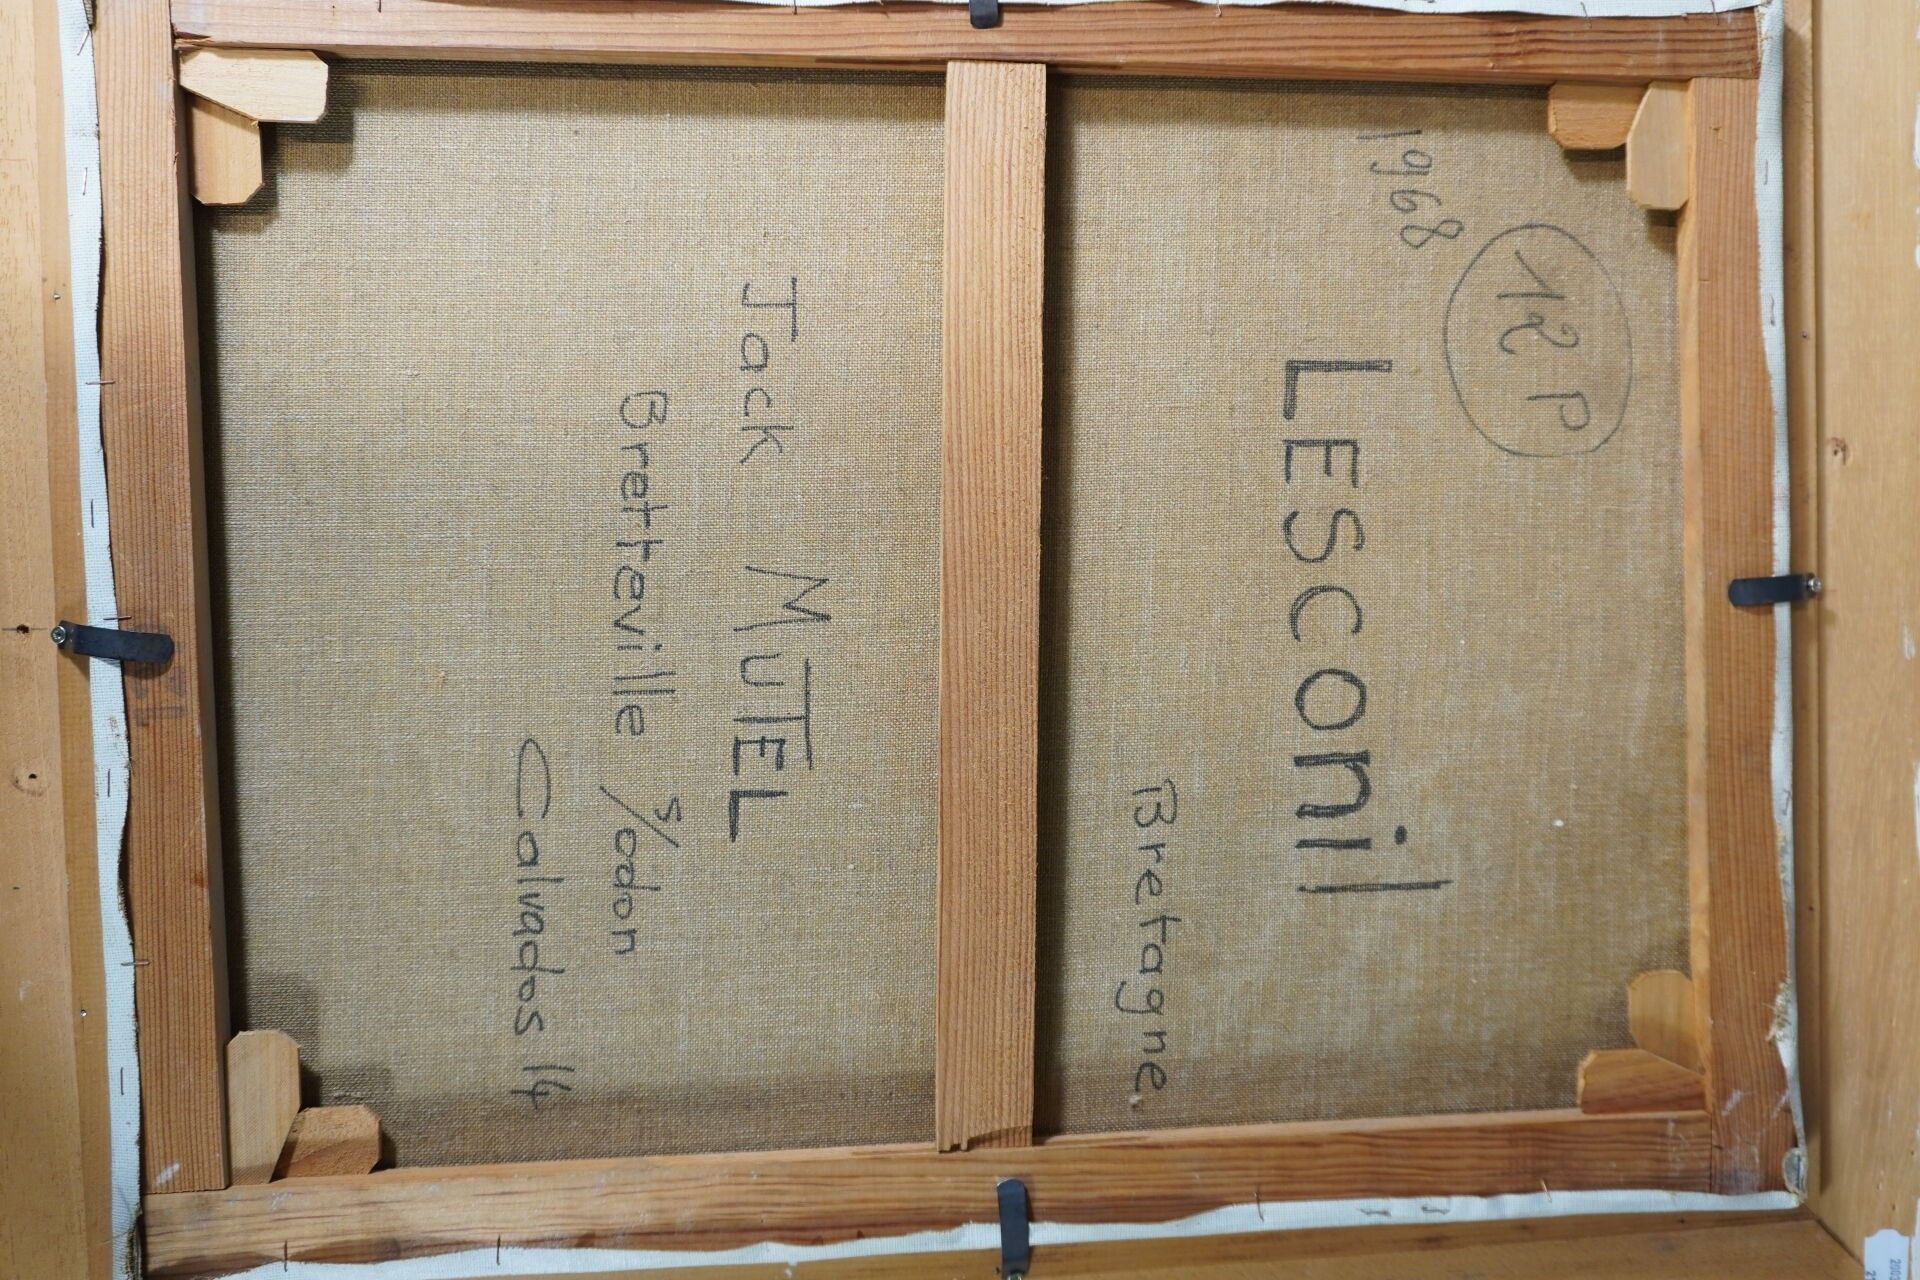 1968
12 P
LESConil
Bretagne
Jack MuTEL
Bretteville s/odon
Calvados 14